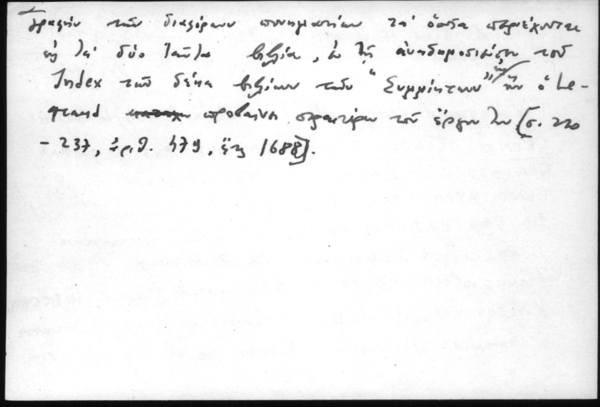 γραφὴν τῶν διαφόρων ποιηματίων τὰ ὁποῖα περιέχονται
εἰς τὰ δύο ταῦτα βιβλία, ἐν τῇ ἀναδημοσιεύσει τοῦ
Index τῶν δέκα βιβλίων τῶν "Συμμίκτων" ἣν ὁ Le-
grand προβαίνει περαιτέρω τοῦ ἔργου του [σ. 220
- 237, ἀριθ. 479, ἔτος 1688].